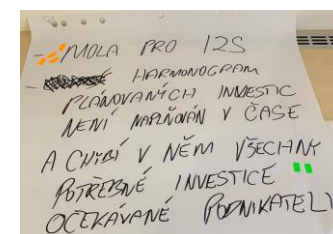 - MOLA PRO I2S
- HARMONOGRAM
PLÁNOVANÝCH INVESTIC
NENÍ NAPLŇOVÁN V ČASE
A CHYBÍ V NĚM VŠECHNY
POTŘEBNÉ INVESTICE
OČEKÁVANÉ PODNIKATELI